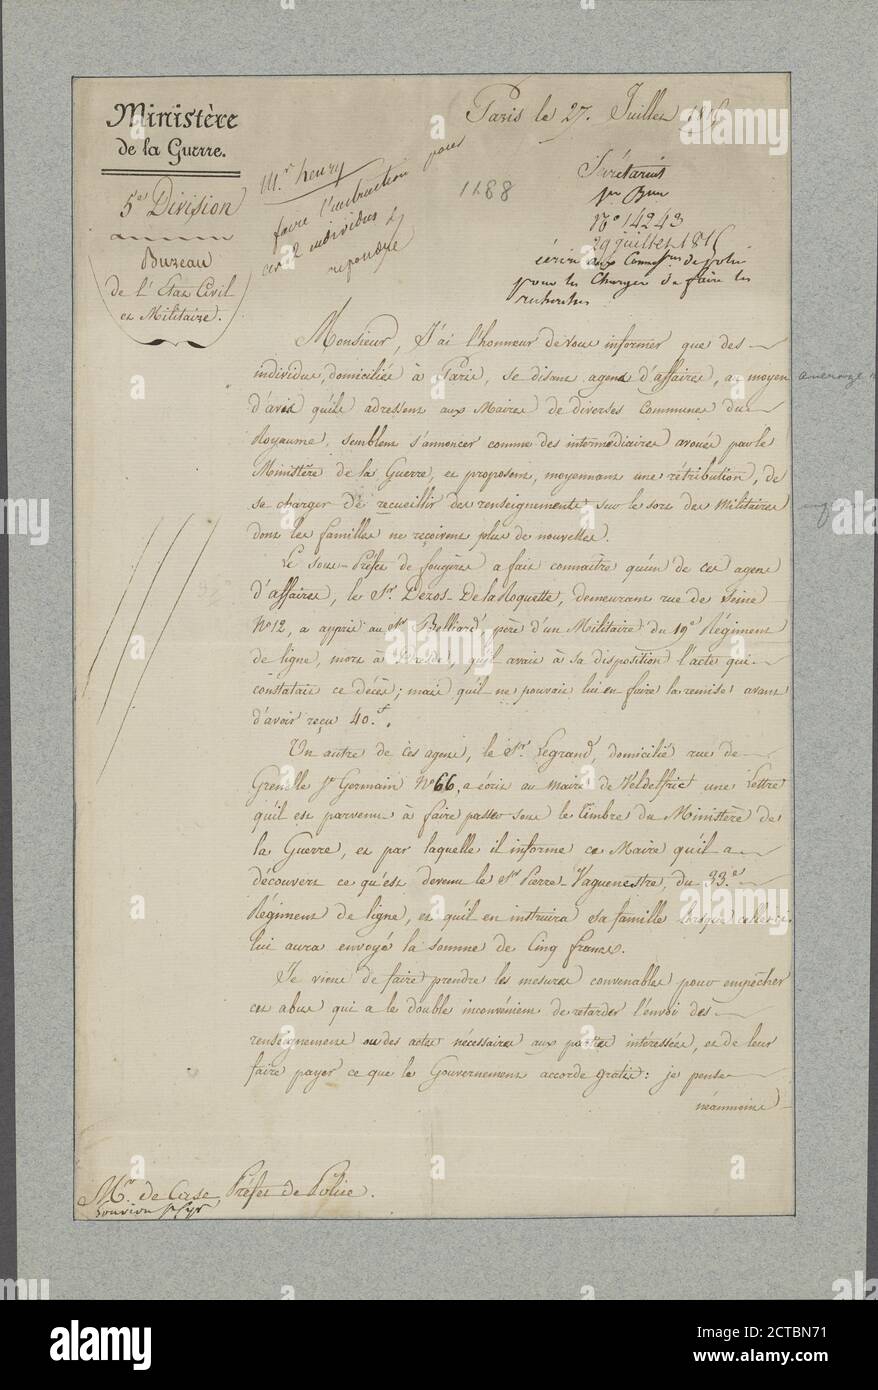 Ministère
de la Guerre.
5e Division
Bureau
de l'Etat Civil
et Militaire.
Paris le 27. Juillet
Mr. henry
faire l'instruction pour
ces 2 individus &
repondre
1188
Secrétariat
1er Bur
No 14243
29 juillet 181
écrire aux Commres de police
pour les charger de faire les
recherches
Monsieur, J'ai l'honneur de vous informer que des
individus, domiciliés à Paris, se disant agens d'affaires, au moyen
d'avis qu'ils adressent aux Maires de diverses Communes du
Royaume, semblent s'annoncer comme des intermédiaires avoués par le
Ministère de la Guerre, et proposent, moyennant une rétribution, de
se charger de recueillir des renseignements sur le sort des Militaires
dont les familles ne reçoivent plus de nouvelles.
Le Sous-Préfet de fougères a fait connaître qu'un de ces agens
d'affaires, le Sr. Dezos-De la Roquette, demeurant rue de Seine
No 12, a appris au Sr Belliard, père d'un Militaire du 19e Régiment
de ligne, mort à Dresde, qu'il avait à sa disposition l'acte qui
constatait ce décès; mais qu'il ne pouvait lui en faire la remise avant
d'avoir reçu 40.f.
Un autre de ces agens, le Sr. Legrand, domicilié rue de
Grenelle St Germain No 66, a écrit au maire de Veldelfrict une Lettre
qu'il est parvenu à faire passer sous le timbre du Ministère de
la Guerre, et par laquelle il informe ce Maire qu'il a
découvert ce qu'est devenu le Sr Pierre Vaguenestre, du 33.e
Régiment de ligne, et qu'il en instruira sa famille lorsque celle-ci
lui aura envoyé la somme de Cinq francs.
Je viens de faire prendre les mesures convenables pour empêcher
cet abus qui a le double inconvénient de retarder l'envoi des
renseignemens ou des actes nécessaires aux parties intéressées, et de leur
faire payer ce que le Gouvernement accorde gratis: je pense
néanmoins
Mr. de Case, Préfet de Police.
Gouvion St Cyr
alamy
Image ID: 2CTBN71
www.alamy.com